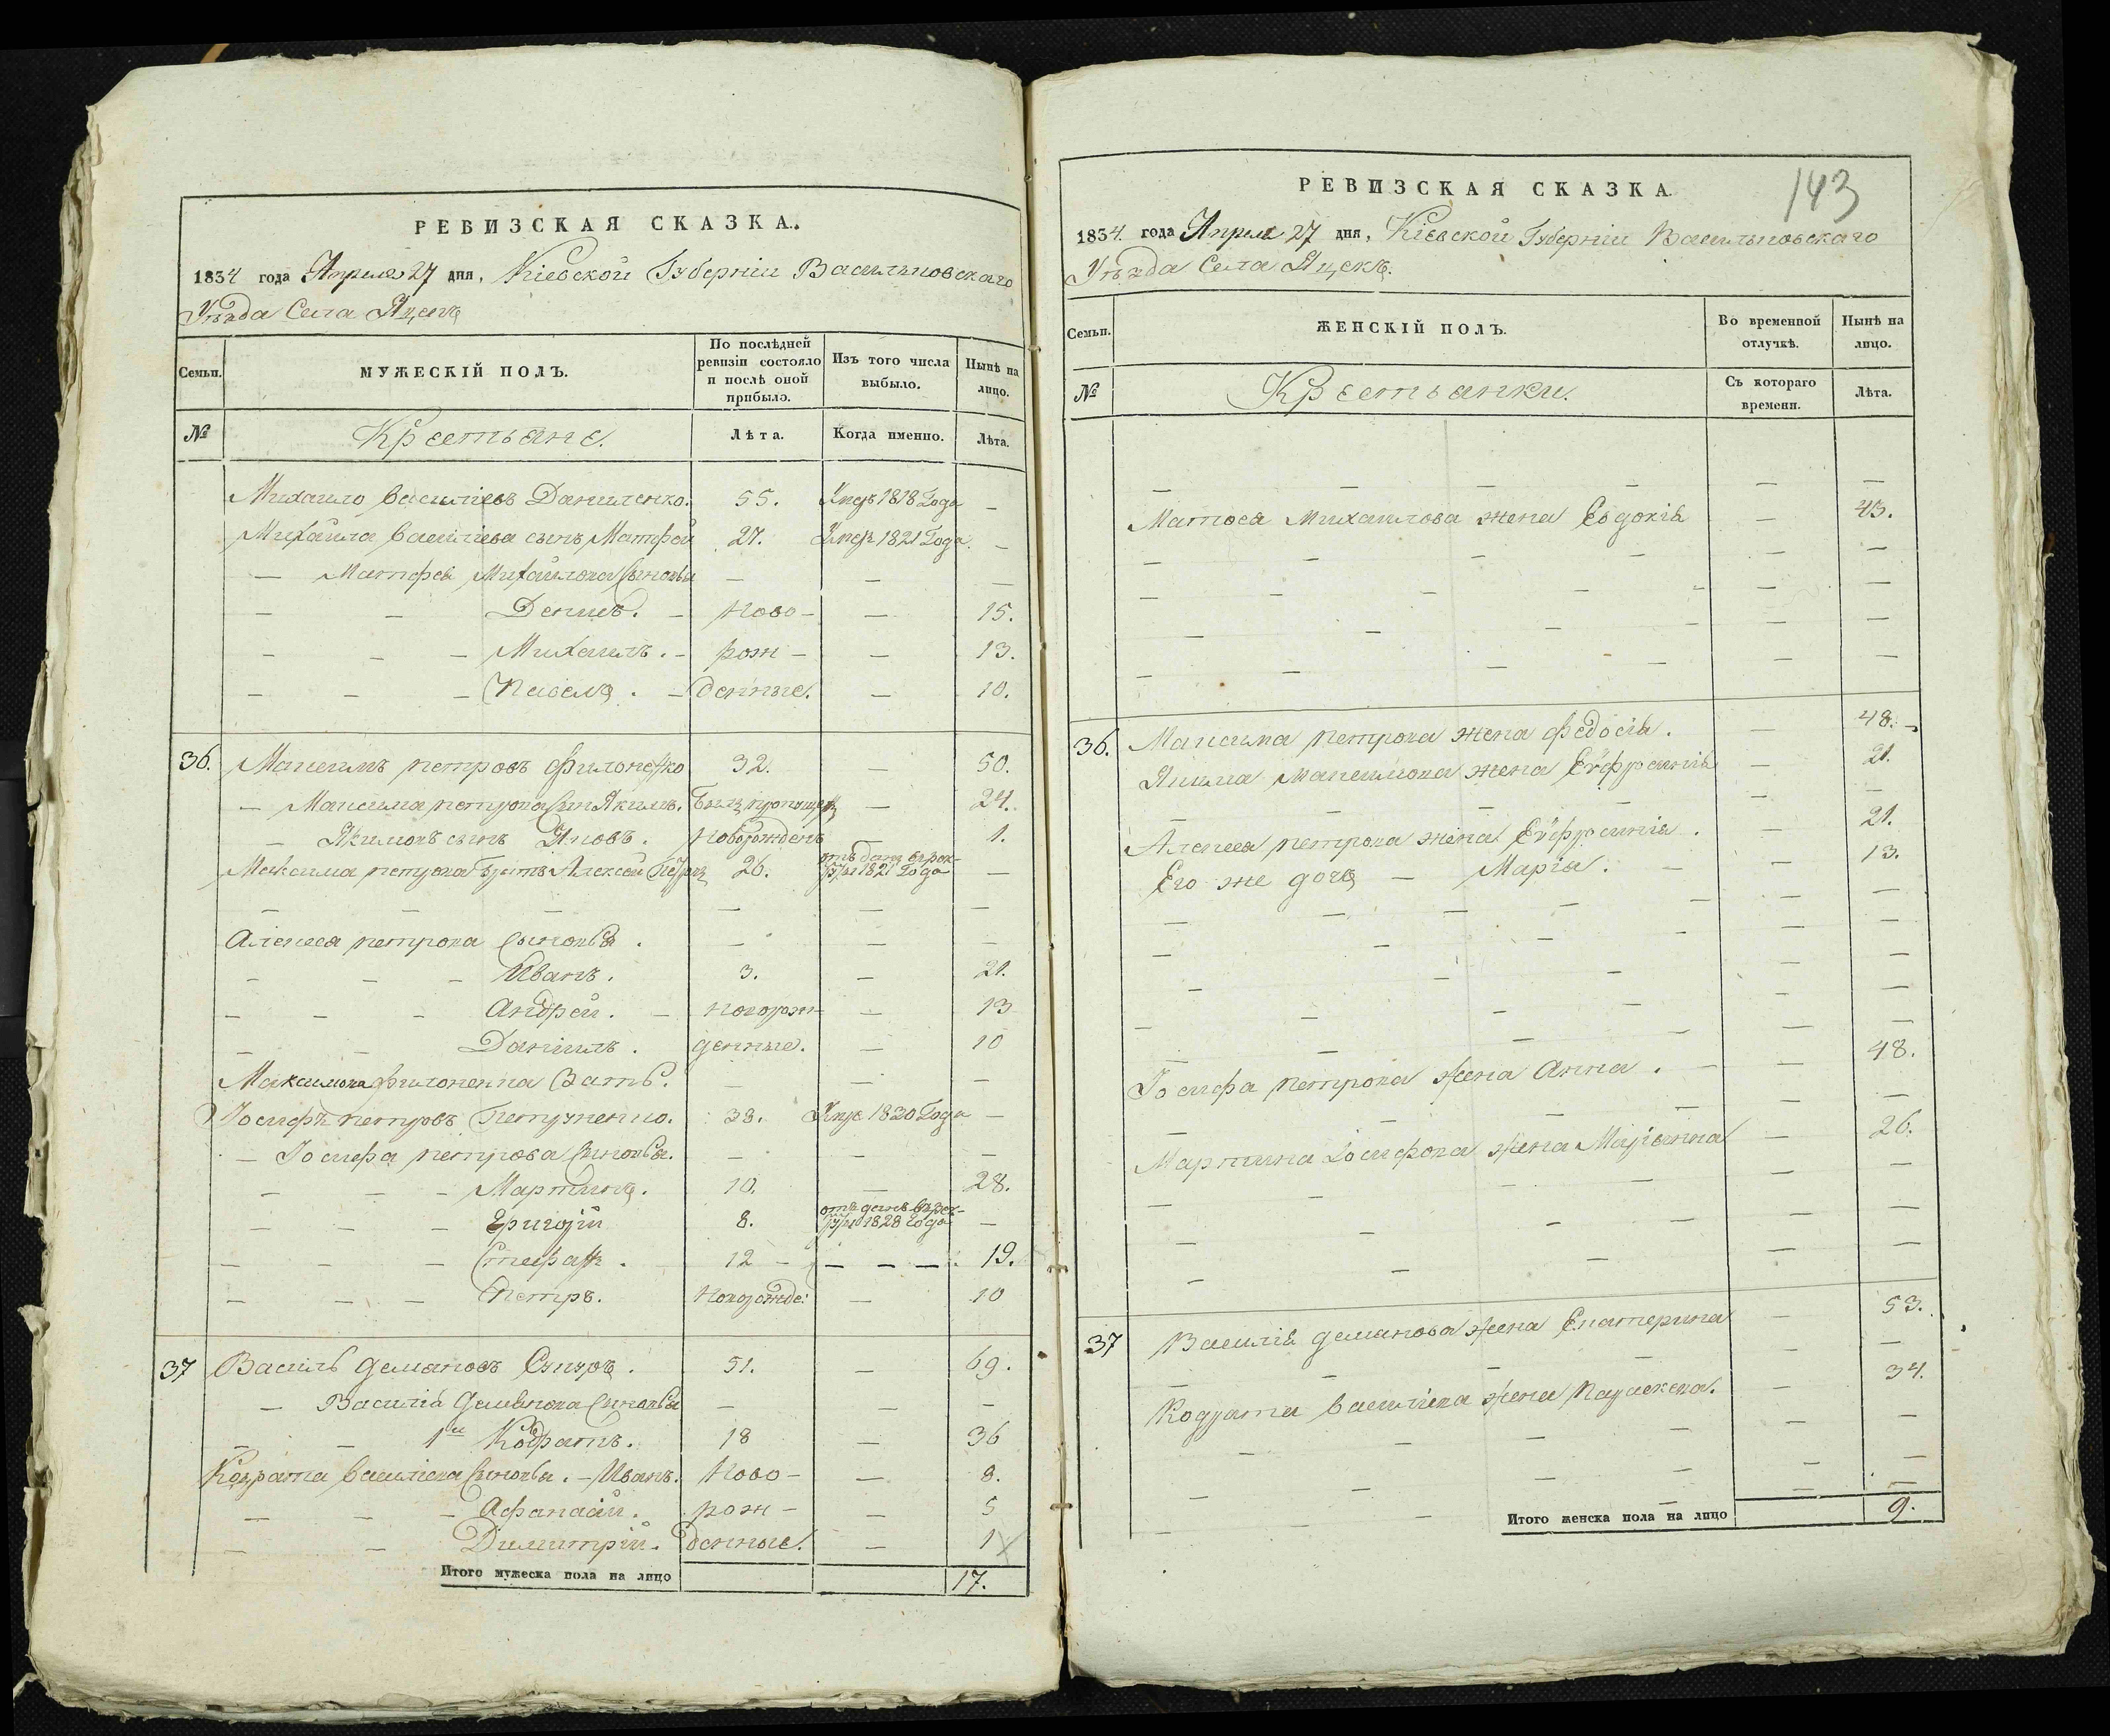 РЕВИЗСКАЯ СКАЗКА.
1834 года Апреля 27 дня, Кіевской Губерніи Васильковскаго
Уѣзда Села Яцекъ
Семьи.
МУЖЕСКІЙ ПОЛЪ.
По послѣдней ревизіи состояло и послѣ оной прибыло.
Изъ того числа выбыло.
Нынѣ на лицо.
№
Крестьяне.
Лѣта.
Когда именно.
Лѣта.
Михаило Василіевъ Даниленко. 55. Умеръ 1818 Года —
Михайла Василіева сынъ Матфей 27. Умеръ 1821 Года. —
— Матфея Михайлова Сыновья — — —
— — Денисъ. — Ново- — 15.
— — — Михаилъ. — рож- — 13.
— — — Павелъ. — денные. — 10.
36. Максимъ петровъ Филоненко 32. — 50.
— Максима петрова Сын Якимъ. Былъ пропущенъ — 24.
— Якимовъ сынъ Яковъ. Новорожденъ 1.
Максима петрова Братъ Алексей 26. отъ данъ в рекруты 1821 Года —
— — — — — —
Алексея петрова Сыновья. — — —
— — — Иванъ. 3. — 21.
— — — Андрей. — новорож- — 13
— — Даніилъ. денные. — 10
Максимова Филоненка Зать. — — —
Іосифъ петровъ Петренко. 38. Умре 1830 Года —
— Іосифа петрова Сыновья. — — —
— — — Мартинъ. 10. — 28.
— — — Григорій 8. отъ данъ в рекруты 1828 Года —
— — — Стефанъ. 12 — — — — 19.
— — — Петръ. Новорожде: — 10
37 Василь Демяновъ 51. — 69.
— Василія Демянова Сыновья — — —
— — 1й Кодратъ. 18 — 36
Кодрата Василіева Сыновья. — Иванъ. Ново- — 8.
— — — Афанасій. рож- — 5
— — Димитрій. денные. — 1
Итого мужеска пола на лицо 17.
143
РЕВИЗСКАЯ СКАЗКА
1834. года Апреля 27 дня, Кіевской Губерніи Васильковскаго
Уѣзда Села Яцекъ.
Семьи.
ЖЕНСКІЙ ПОЛЪ.
Во временной отлучкѣ.
Нынѣ на лицо.
№
Крестьянки.
Съ котораго времени.
Лѣта.
— — — — — —
Матфея Михаилова жена Евдокія — 43.
— — — — — —
— — — — — — —
— — — — — —
— — — — — —
36. Максима петрова жена Федосія. — 48.
Якима Максимова жена Евфросинія — 21.
— — — — — —
Алексея петрова жена Евфросинія. — 21.
Его же дочь — Марія. — — 13.
— — — — — —
— — — — — —
— — — — — —
— — — — — —
— — — — —
Іосифа петрова жена Анна. — — 48.
— — — — —
Мартина Іосифова жена Маріанна — 26.
— — — — — —
— — — — — —
— — — — —
37 Василія Демянова жена Екатерина — 53.
— — — — —
Кодрата Василіева жена Параскева. — 34.
— — — — — —
— — — — — —
— — — — — —
Итого женска пола на лицо 9.